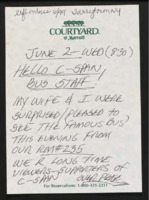 COURTYARD
by Marriott
JUNE 2-WED (8:30)
HELLO C-SPAN,
BUS STAFF,
MY WIFE & I WERE
SURPRISED/PLEASED TO
SEE THE FAMOUS BUS,
THIS EVENING FROM
OUR RM#235
WE R LONG TIME
VIEWERS-SUPPORTERS OF
C-SPAN
For Reservations: 1-800-321-2211